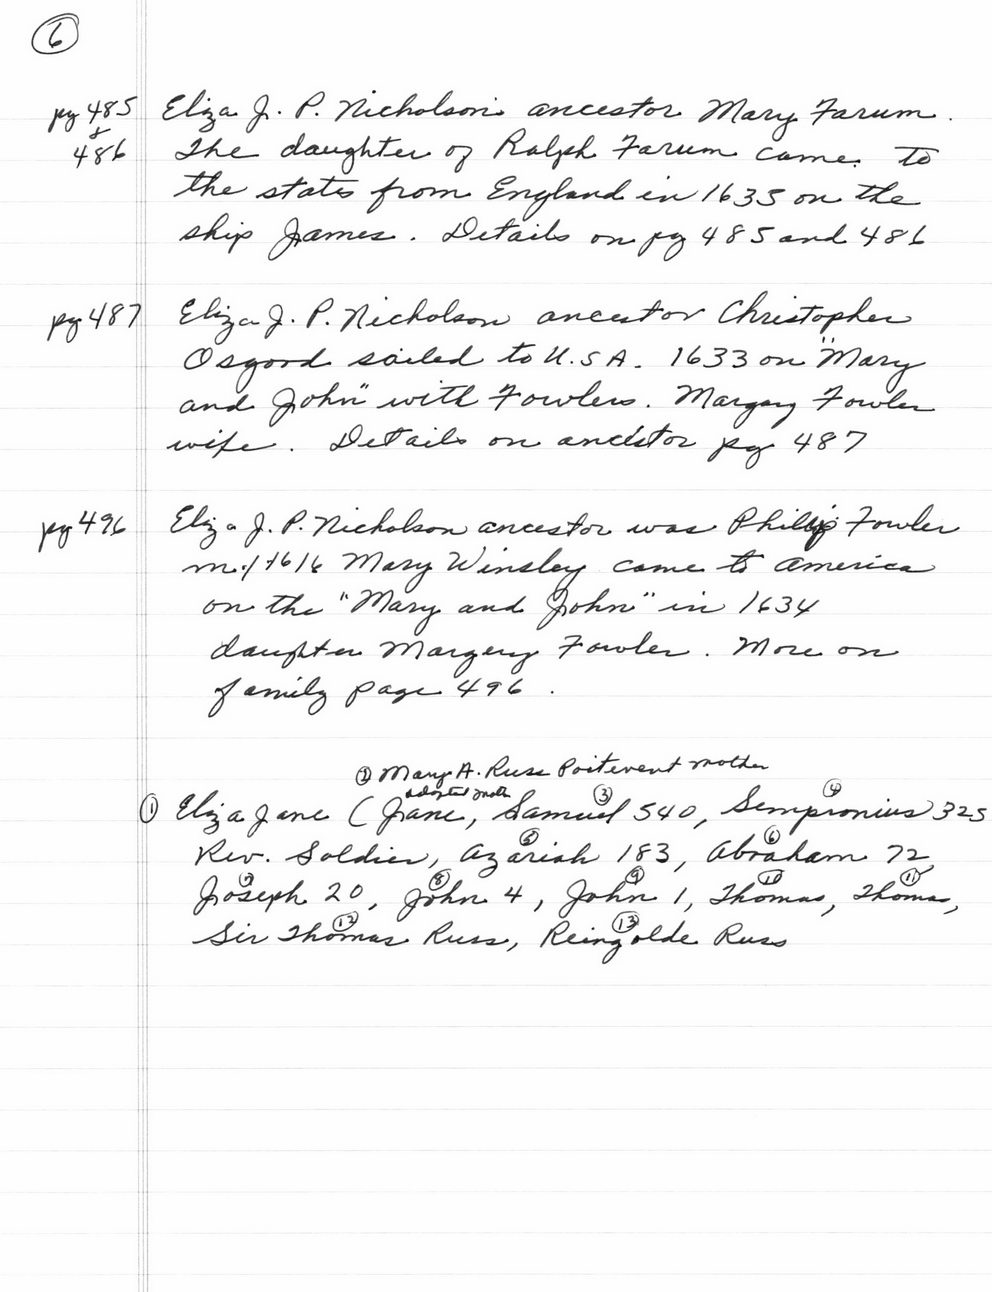 6
pg 485 Eliza J. P. Nicholson's ancestor Mary Farum.
& 486 The daughter of Ralph Farum came to
the states from England in 1635 on the
ship James. Details on pg 485 and 486
pg 487 Eliza J. P. Nicholson ancestor Christopher
Osgood sailed to U.S A. 1633 on "Mary
and John" with Fowlers. Margery Fowler
wife. Details on ancestor pg 487
pg 496 Eliza J. P. Nicholson ancestor was Phillip Fowler
m. 1616 Mary Winsley came to America
on the "Mary and John" in 1634
daughter Margery Fowler. More on
family page 496.
② Mary A. Russ Poitevent mother
adopted moth
① Eliza Jane (Jane, Samuel ③ 540, Sempronius ④ 325
Rev. Soldier, Azariah ⑤ 183, Abraham ⑥ 72,
Joseph ⑦ 20, John ⑧ 4, John ⑨ 1, Thomas ⑩, Thomas ⑪,
Sir Thomas ⑫ Russ, Reingolde ⑬ Russ